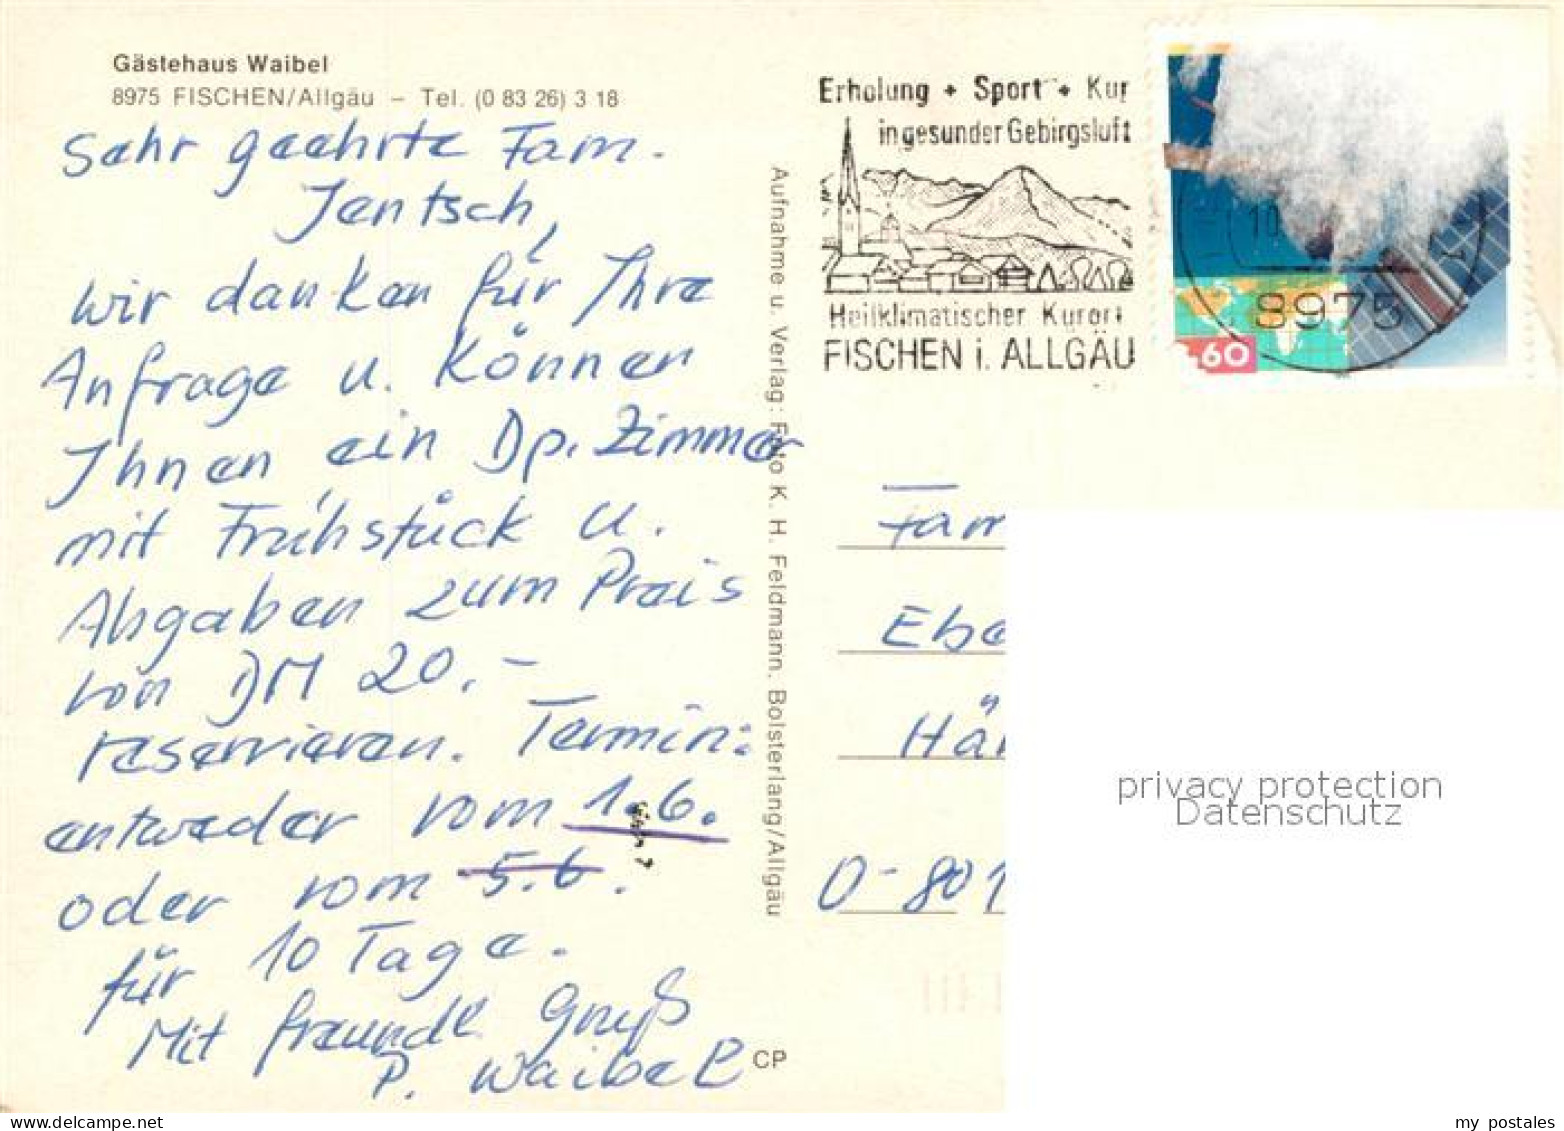 Gästehaus Waibel
8975 FISCHEN/Allgäu – Tel. (0 83 26) 3 18
Sehr geehrte Fam.
Jentsch,
wir danken für Ihre
Anfrage u. können
Ihnen ein Dp. Zimmer
mit Frühstück u.
Abgaben zum Preis
von DM 20.-
reservieren. Termin:
entweder vom 1.6.
oder vom 5.6.
für 10 Tage.
Mit freundl Gruß
P. Waibel
CP
Aufnahme u. Verlag: Foto K. H. Feldmann, Bolsterlang/Allgäu
Erholung + Sport + Kur
in gesunder Gebirgsluft
Heilklimatischer Kurort
FISCHEN i. ALLGÄU
10
8975
60
Fam
Ebe
Hä
O-801
privacy protection
Datenschutz
my postales